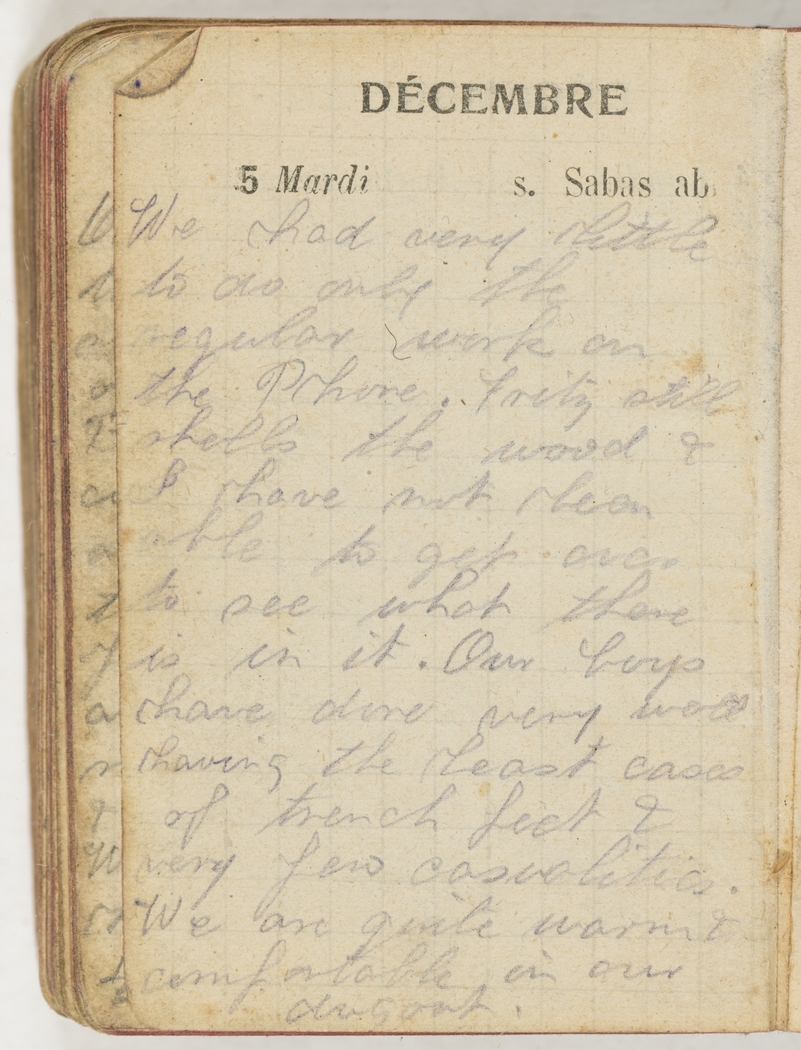 DÉCEMBRE
5 Mardi s. Sabas ab
We had very little
to do only the
regular work on
the Phone. Fritz still
shells the wood &
I have not been
able to get over
to see what there
is in it. Our boys
have done very well
having the least cases
of trench feet &
very few casualities.
We are quite warm &
comfortable in our
dugout.